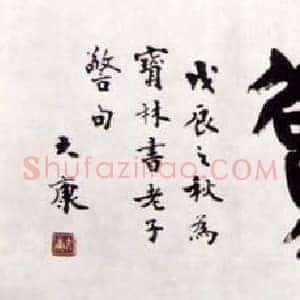 戊辰之秋為
寶林書老子
警句
大康
Shufaziliao.com